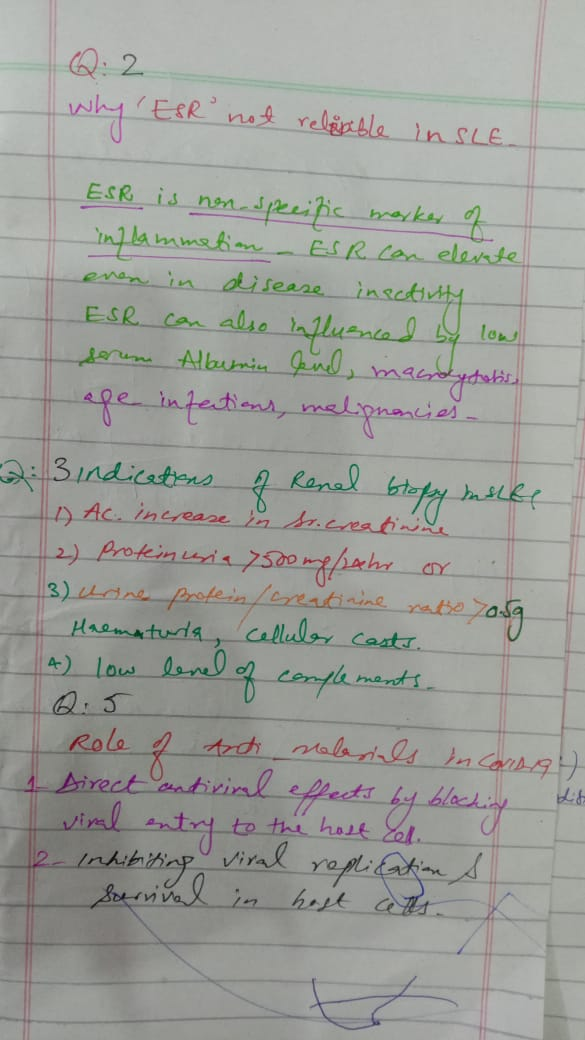 Q: 2
Why 'ESR' not reliable in SLE-
ESR is non-specific marker of
inflammation - ESR can elevate
even in disease inactivity
ESR can also influenced by low
serum Albumin level, macrocytosis,
age infections, malignancies-
Q: 3 indications of Renal biopsy in SLE?
1) Ac. increase in Sr. creatinine
2) Proteinuria >500mg/24hr or
3) Urine protein/creatinine ratio >0.5g
Haematuria, cellular casts.
4) low level of complements-
Q: 5
Role of Anti-malarials in Covid19:)
1- Direct antiviral effects by blocking
viral entry to the host cell.
2- Inhibiting viral replication &
Survival in host cells.